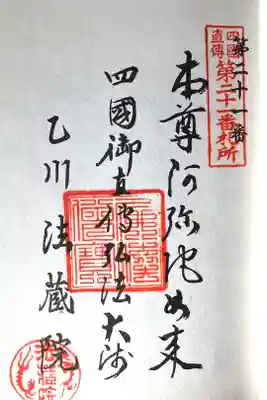 第二十一番
四國直傳
第二十一番札所
本尊阿弥陀如来
四國御直傳弘法大師
乙川法蔵院